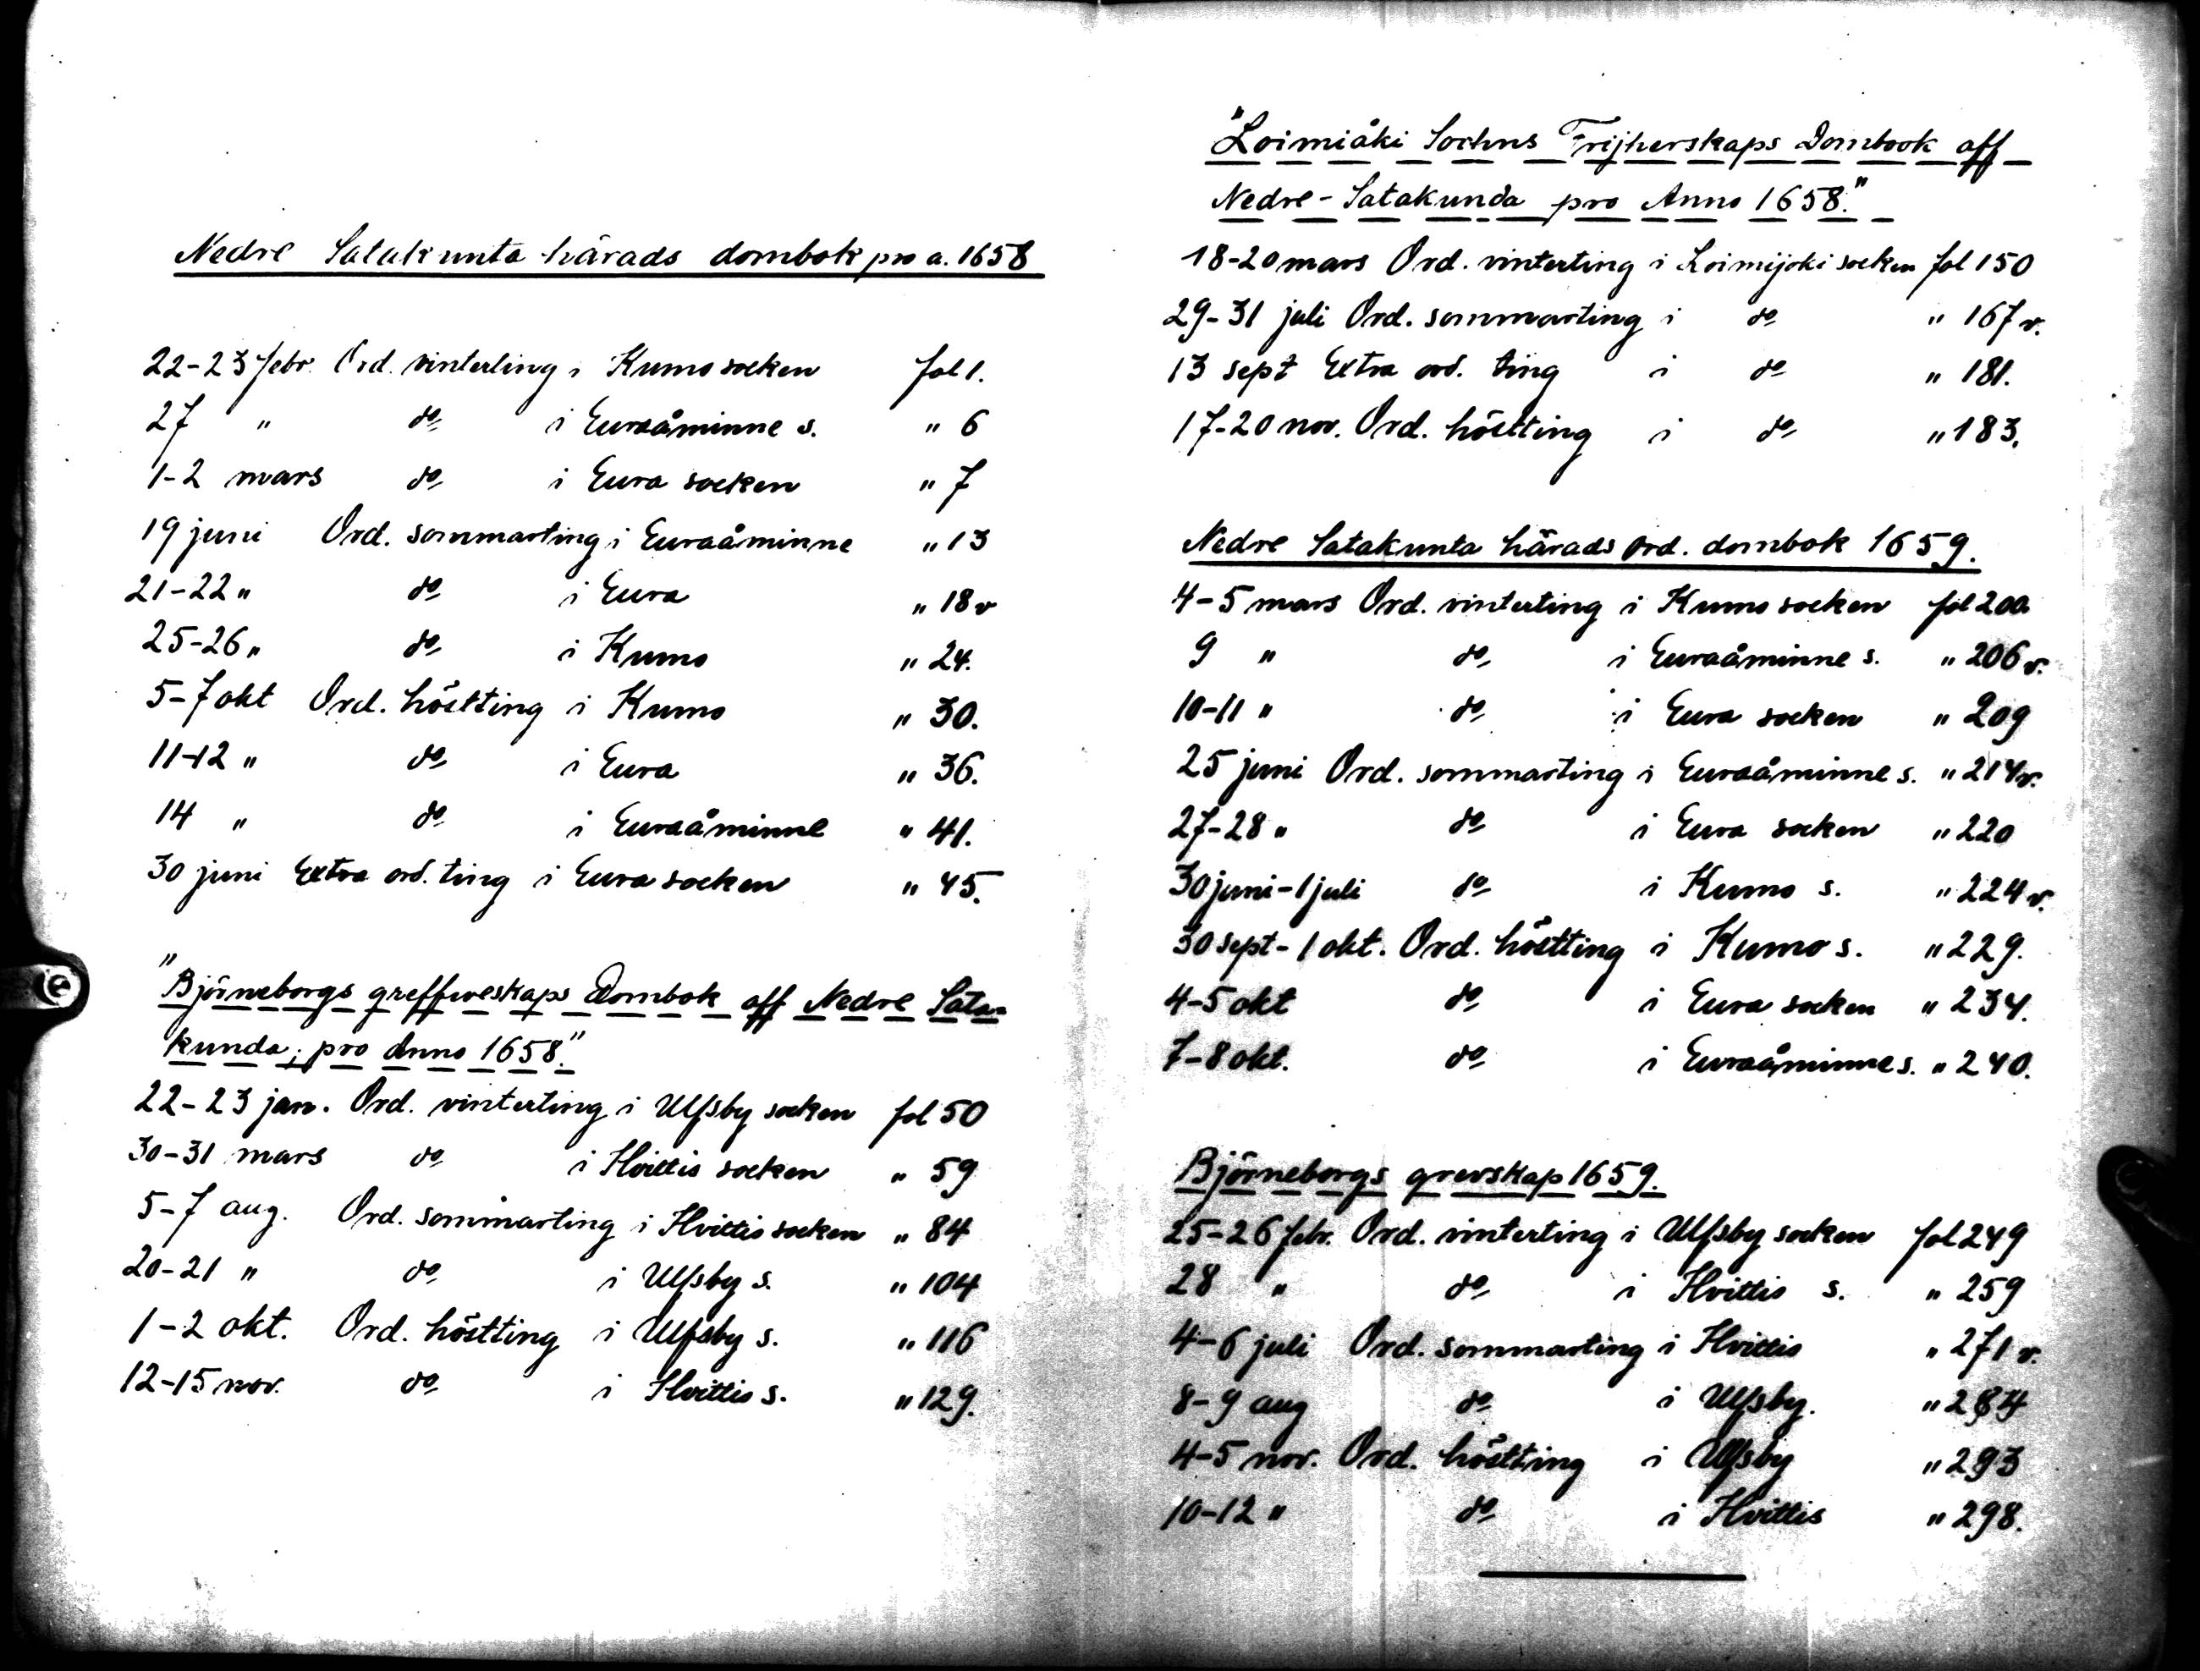 Nedre Satakunta härads dombok pro a. 1658
22-23 febr. Ord. vinterting i Kumo socken fol 1.
27 " do i Euraåminne s. " 6
1-2 mars do i Eura socken " 7
19 juni Ord. sommarting i Euraåminne " 13
21-22 " do i Eura " 18 v
25-26 " do i Kumo " 24.
5-7 okt Ord. hösttting i Kumo " 30.
11-12 " do i Eura " 36.
14 " do i Euraåminne " 41.
30 juni Extra ord. ting i Eura socken " 45.
"Björneborgs greffweskaps Dombok aff Nedre Sata=
kunda, pro Anno 1658."
22-23 jan. Ord. vinterting i Ulfsby socken fol 50
30-31 mars do i Hvittis socken " 59
5-7 aug. Ord. sommarting i Hvittis socken " 84
20-21 " do i Ulfsby s. " 104
1-2 okt. Ord. hösttting i Ulfsby s. " 116
12-15 nov. do i Hvittis s. " 129.
"Loimiåki Sochns Frijherskaps Dombook aff
Nedre-Satakunda pro Anno 1658."
18-20 mars Ord. vinterting i Loimijoki socken fol 150
29-31 juli Ord. sommarting i do " 167 v.
13 sept Extra ord. ting i do " 181.
17-20 nov. Ord. hösttting i do " 183.
Nedre Satakunta härads ord. dombok 1659.
4-5 mars Ord. vinterting i Kumo socken fol 200
9 " do i Euraåminne s. " 206 v.
10-11 " do i Eura socken " 209
25 juni Ord. sommarting i Euraåminne s. " 214 v.
27-28 " do i Eura socken " 220
30 juni-1 juli do i Kumo s. " 224 v.
30 sept-1 okt. Ord. hösttting i Kumo s. " 229.
4-5 okt do i Eura socken " 234.
7-8 okt. do i Euraåminne s. " 240.
Björneborgs grevskap 1659.
25-26 febr. Ord. vinterting i Ulfsby socken fol 249
28 " do i Hvittis s. " 259
4-6 juli Ord. sommarting i Hvittis " 271 v.
8-9 aug do i Ulfsby. " 284
4-5 nov. Ord. hösttting i Ulfsby " 293
10-12 " do i Hvittis " 298.